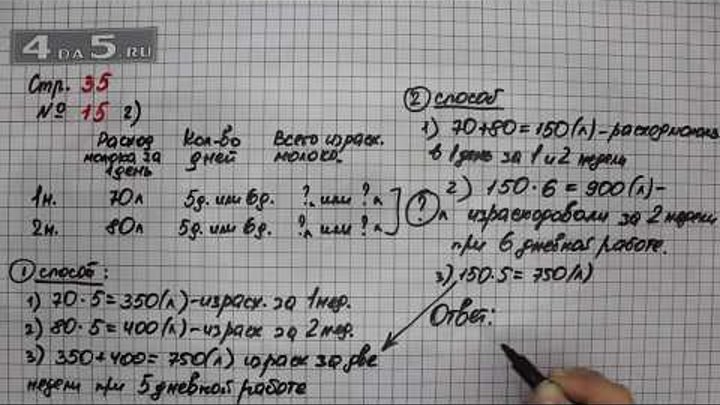 4 DA 5.RU
Стр. 35
№ 15 г)
Расход молока за 1 день
Кол-во дней
Всего израсх. молоко.
1н. 70л 5д. или 6д. ?л или ?л
2н. 80л 5д. или 6д. ?л или ?л
? л
1 способ:
1) 70·5=350(л)-израсх. за 1 нед.
2) 80·5=400(л)-израсх за 2 нед.
3) 350+400=750(л) израсх за две
недели при 5 дневной работе
2 способ
1) 70+80=150(л)-расход молока
в 1 день за 1 и 2 недели
2) 150·6=900(л)-
израсходовали за 2 недели
при 6 дневной работе.
3) 150·5=750(л)
Ответ: